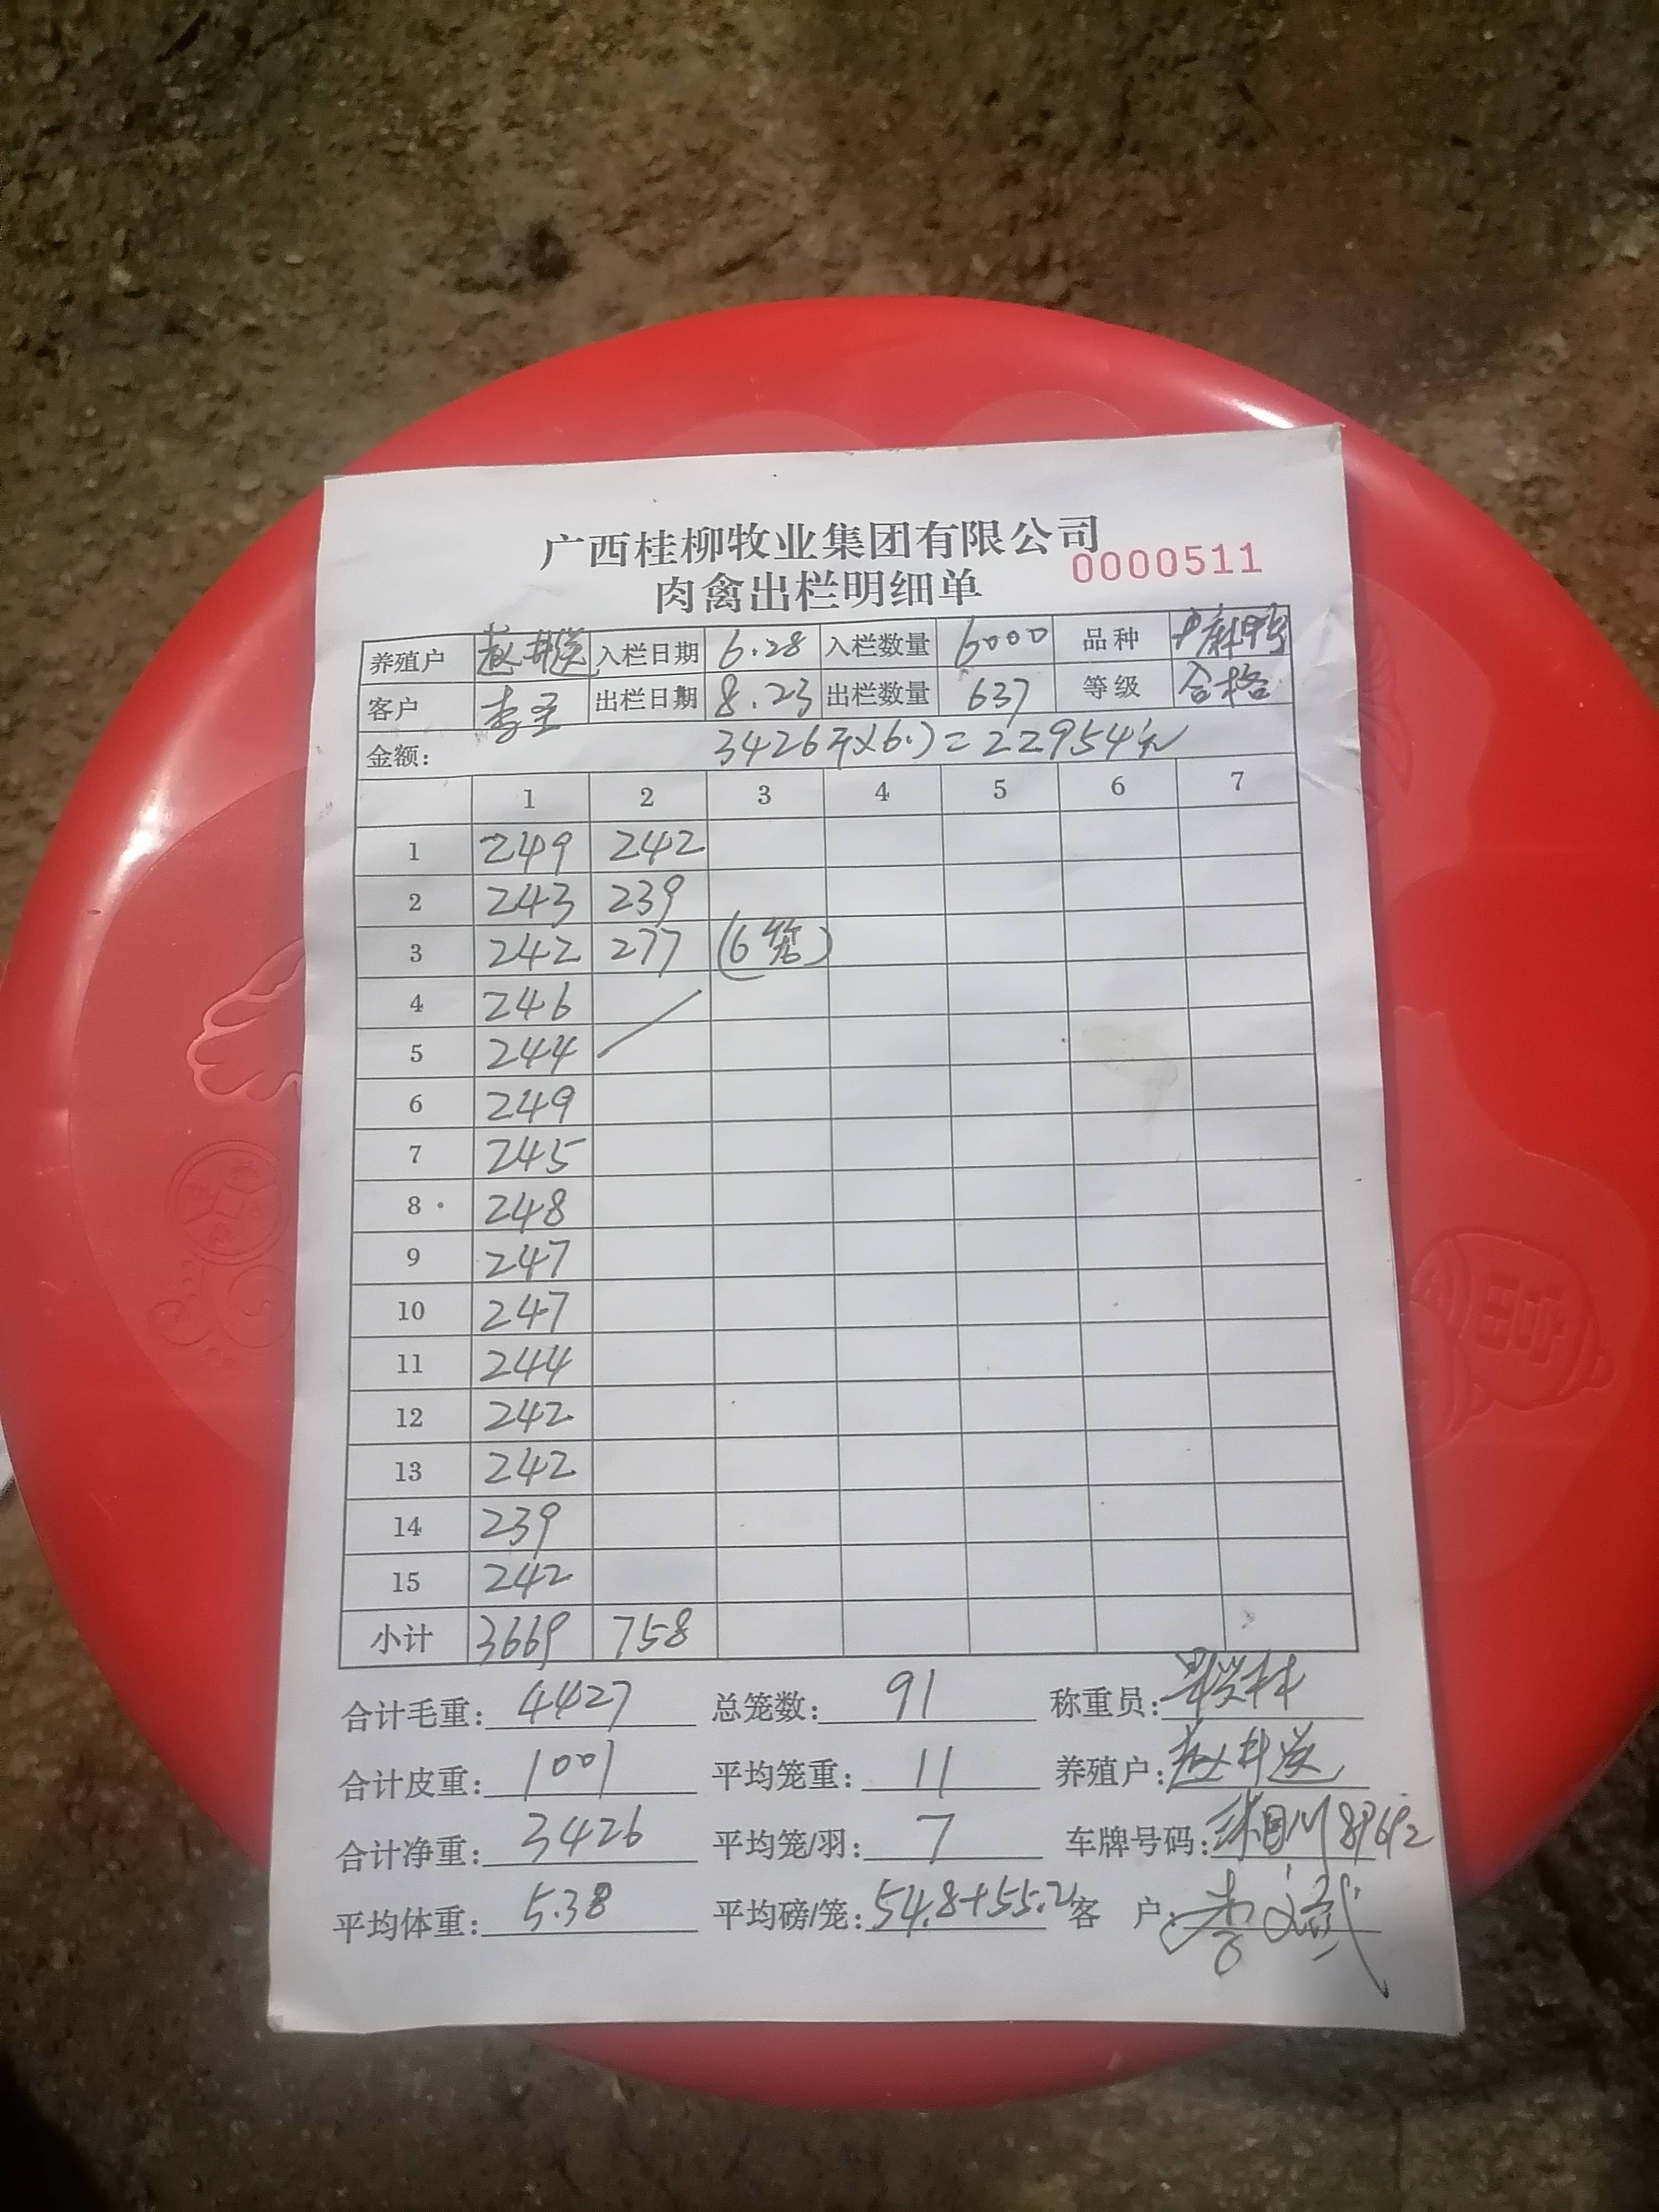 广西桂柳牧业集团有限公司
肉禽出栏明细单 0000511
养殖户 赵井送 入栏日期 6.28 入栏数量 6000 品种
客户 出栏日期 8.23 出栏数量 637 等级 合格
金额: 3426斤×6.)=22954元
1 2 3 4 5 6 7
1 249 242
2 243 239
3 242 277 (6笼)
4 246
5 244
6 249
7 245
8 248
9 247
10 247
11 244
12 242
13 242
14 239
15 242
小计 3669 758
合计毛重: 4427 总笼数: 91 称重员:
合计皮重: 1001 平均笼重: 11 养殖户: 赵井送
合计净重: 3426 平均笼/羽: 7 车牌号码:
平均体重: 5.38 平均磅/笼: 54.8+55.2 客 户: